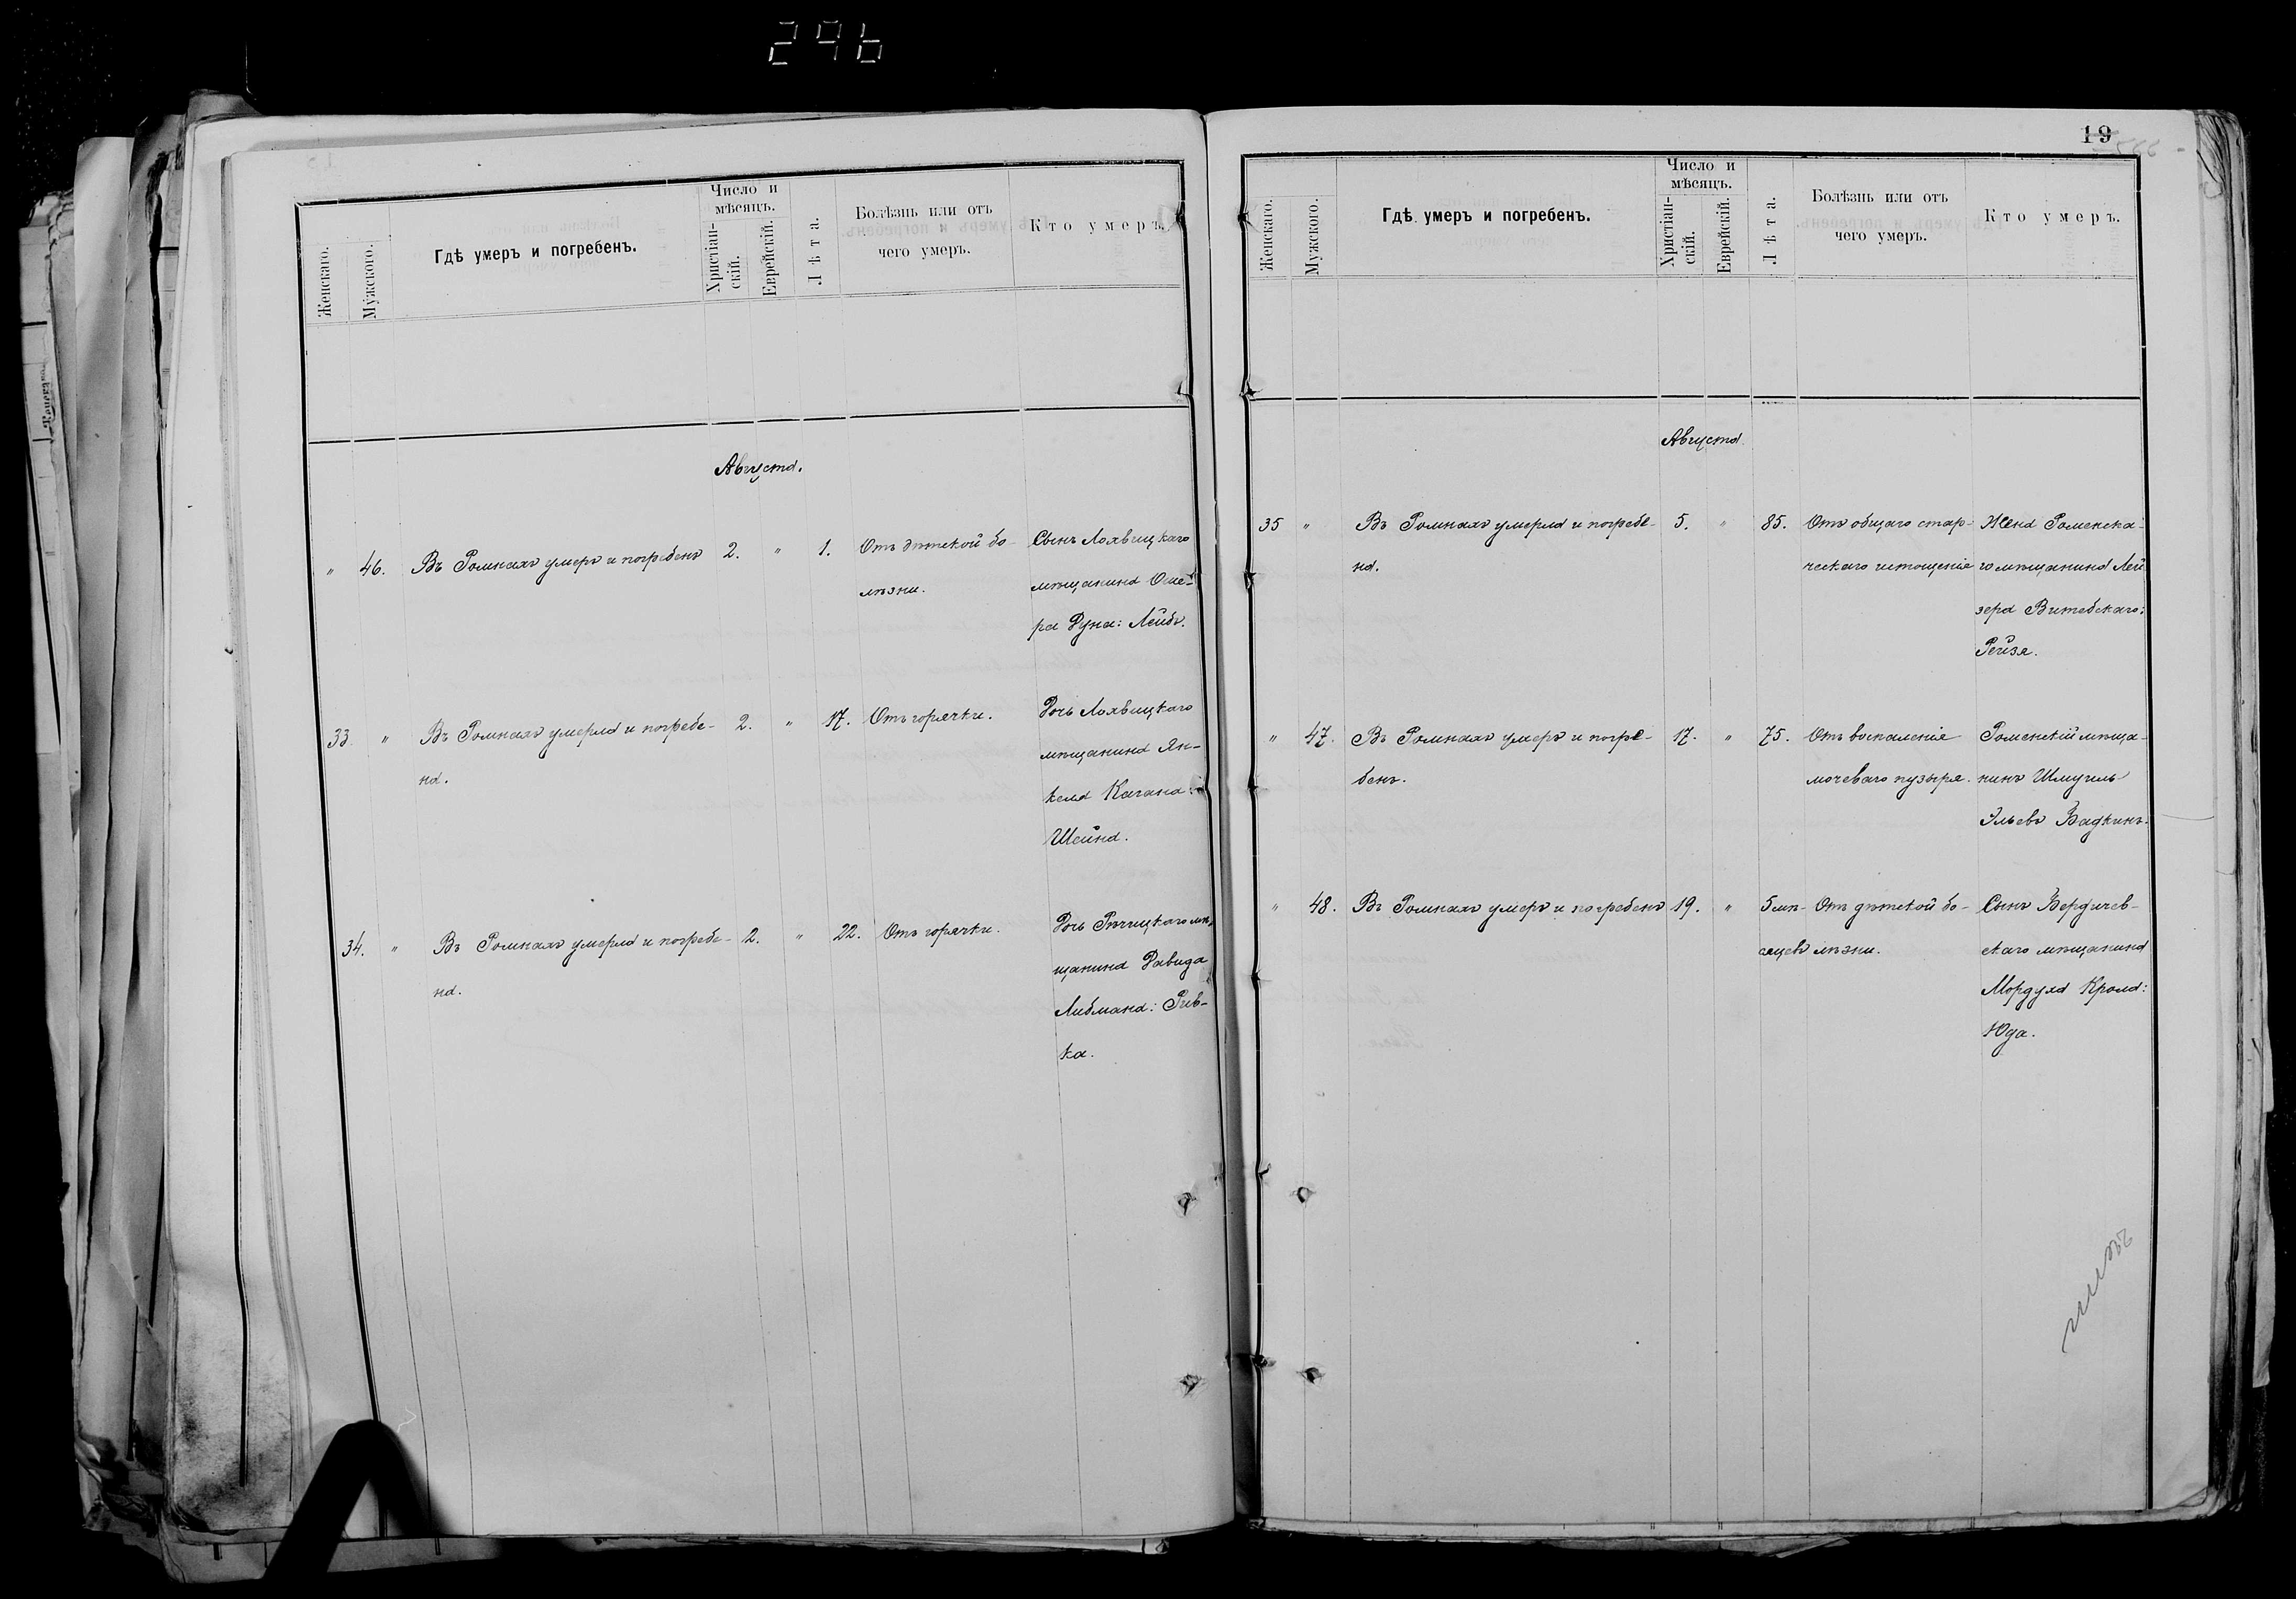 296
Женскаго.
Мужскаго.
Гдѣ умеръ и погребенъ.
Число и
мѣсяцъ.
Христіан-
скій.
Еврейскій.
Лѣта.
Болѣзнь или отъ
чего умеръ.
Кто умеръ.
Августа.
" 46. Въ Ромнахъ умеръ и погребенъ 2. " 1. Отъ дѣтской бо- Сынъ Лохвицкаго
лѣзни. мѣщанина Оше-
ра Дуна: Лейбъ.
33. " Въ Ромнахъ умерла и погребе- 2. " 17. Отъ горячки. Дочь Лохвицкаго
на. мѣщанина Ян-
келя Кагана:
Шейна.
34. " Въ Ромнахъ умерла и погребе- 2. " 22. Отъ горячки. Дочь Рѣчицкаго мѣ-
на. щанина Давида
Либмана: Рив-
ка.
19
Женскаго.
Мужскаго.
Гдѣ умеръ и погребенъ.
Число и
мѣсяцъ.
Христіан-
скій.
Еврейскій.
Лѣта.
Болѣзнь или отъ
чего умеръ.
Кто умеръ.
Августа
35 " Въ Ромнахъ умерла и погребе- 5. " 85. Отъ общаго стар- Жена Роменска-
на. ческаго истощенія го мѣщанина Лей
зера Витебскаго:
Рейзя.
" 47. Въ Ромнахъ умеръ и погре- 17. " 75. Отъ воспаленія Роменскій мѣща-
бенъ. мочеваго пузыря. нинъ Шмуиль
Эльевъ
" 48. Въ Ромнахъ умеръ и погребенъ 19. " 5 мѣ- Отъ дѣтской бо- Сынъ Бердичев-
сяцевъ лѣзни. скаго мѣщанина
Мордуха Крола:
Юда.